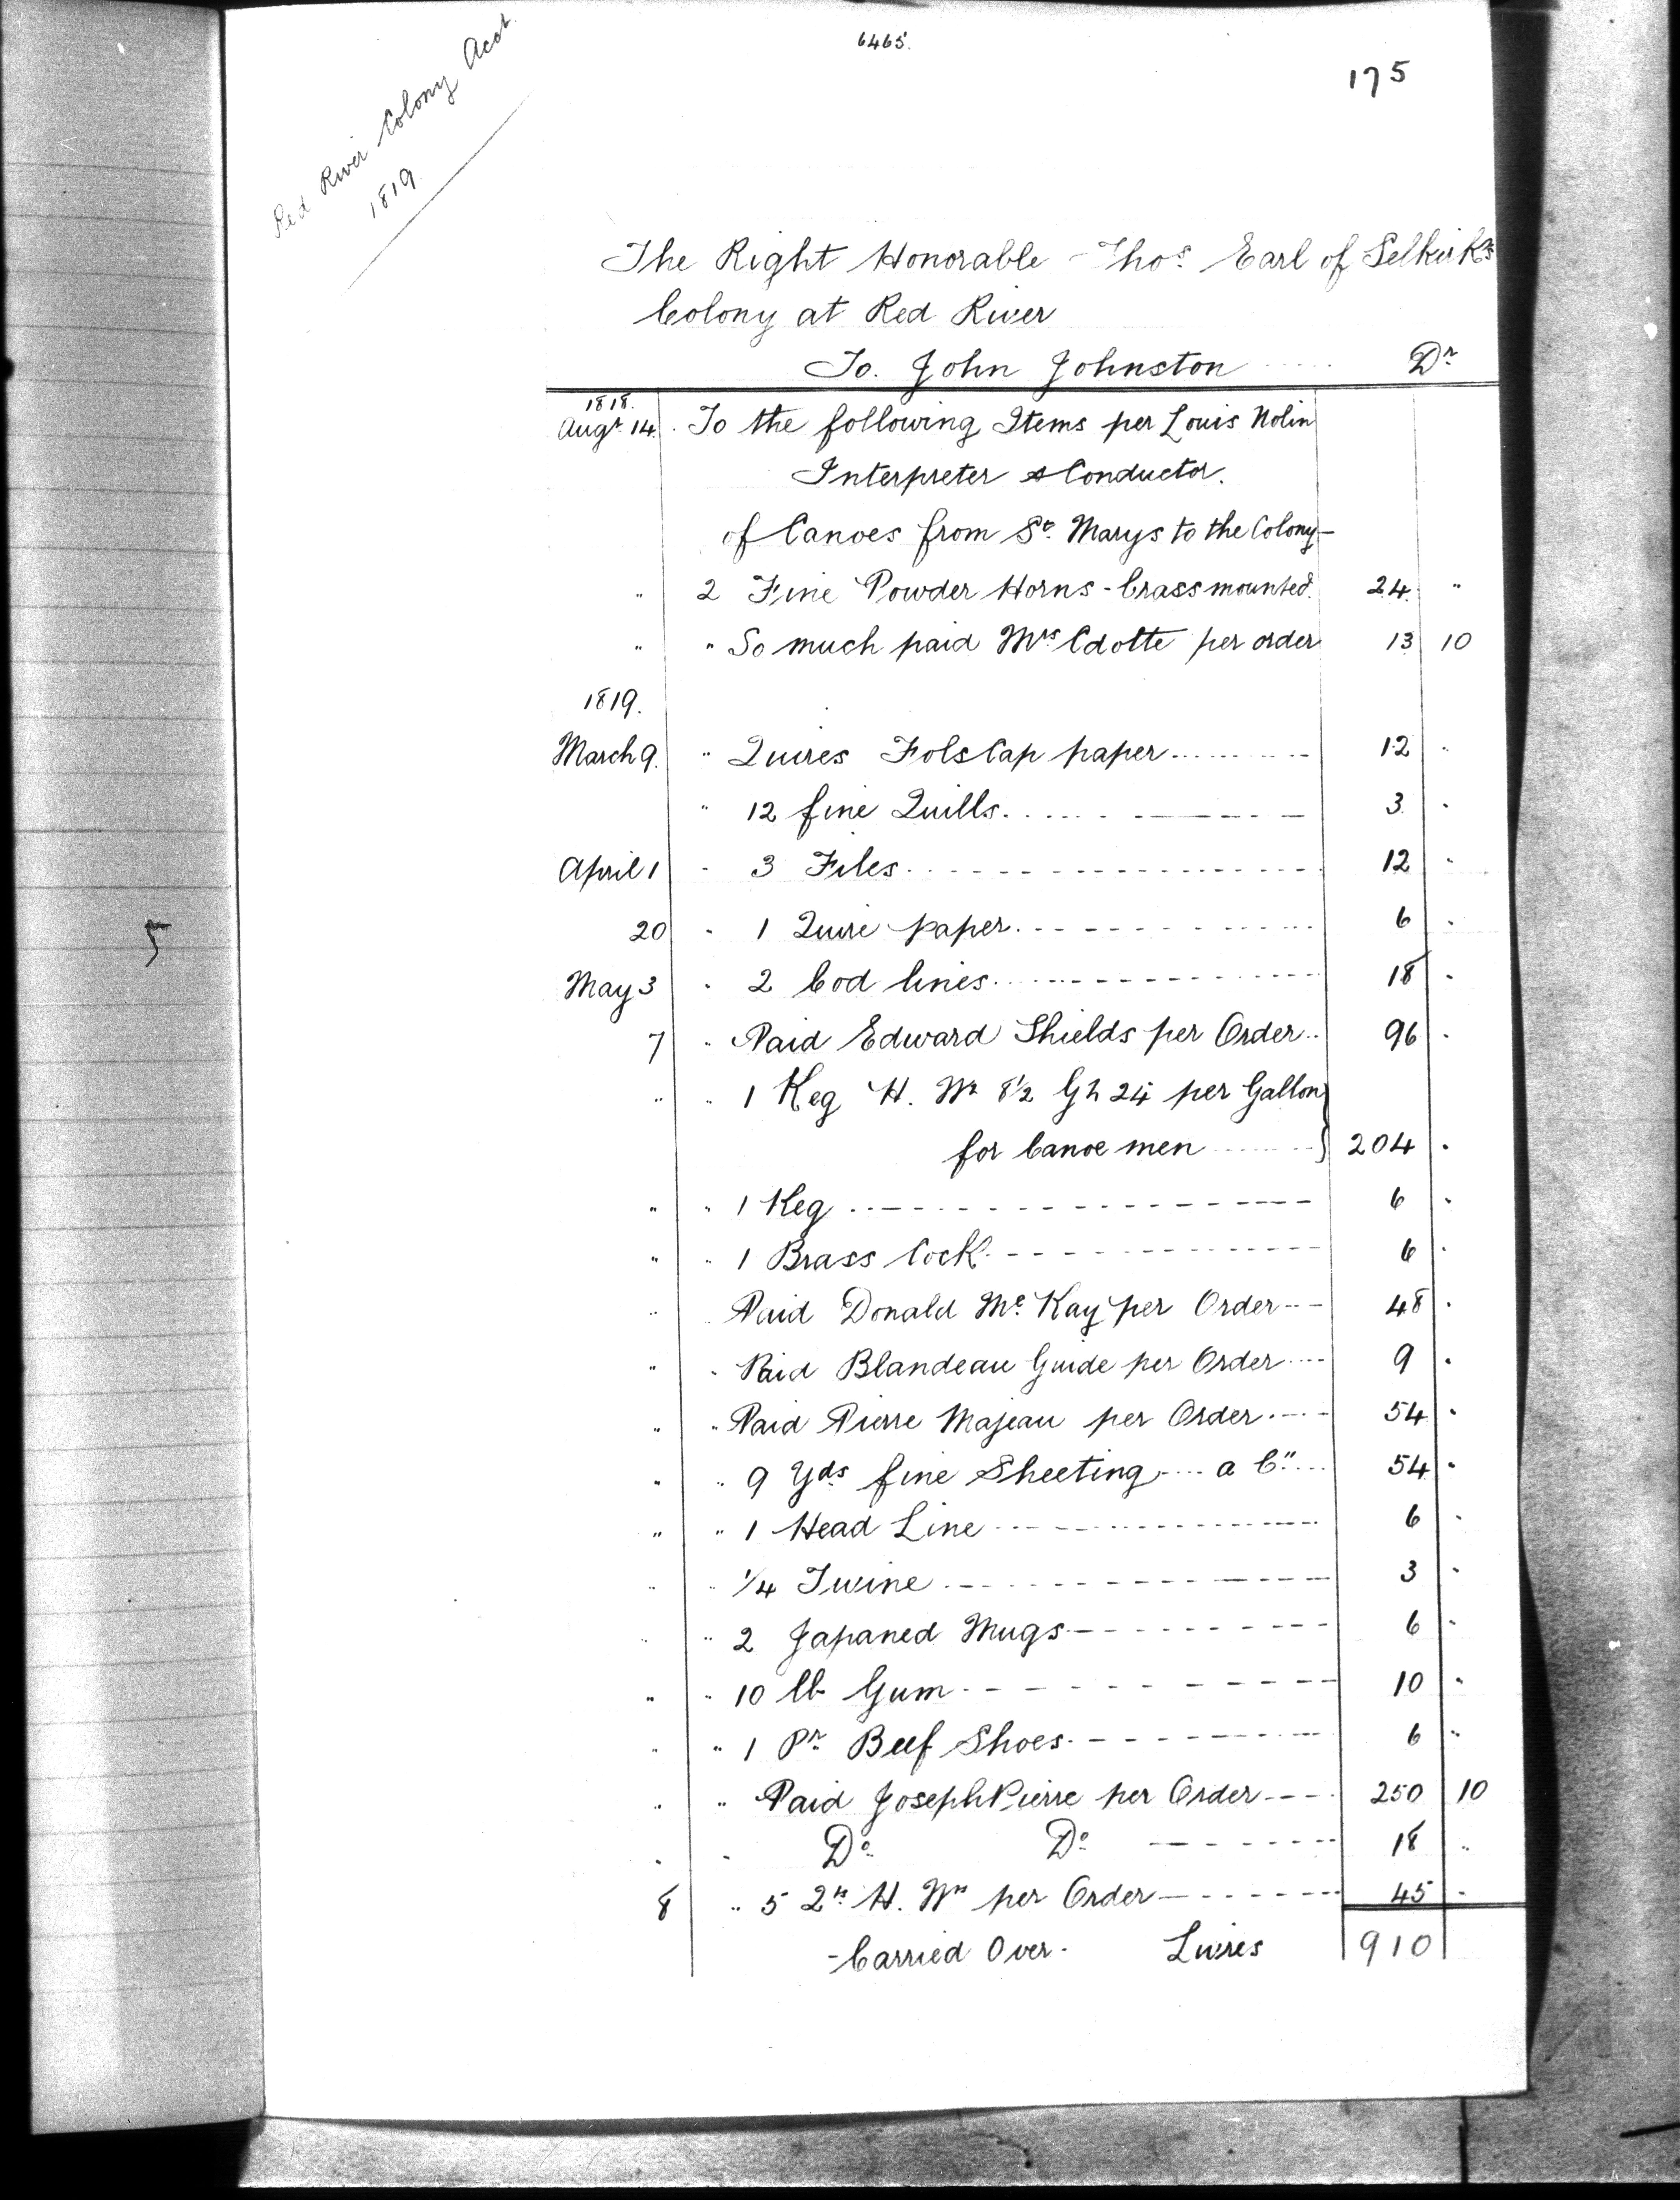 6465.
175
Red River Colony Acct
1819.
The Right Honorable Thos. Earl of Selkirks
Colony at Red River
To. John Johnston Dr
1818.
Augt. 14. To the following Items per Louis Nolin
Interpreter & Conductor.
of Canoes from St. Marys to the Colony—
" 2 Fine Powder Horns - brass mounted. 24. "
" " So much paid Mrs Cdotte per order 13 10
1819.
March 9. " Quires Fols Cap paper 12 "
" 12 fine Quills. 3. "
April 1 " 3 Files 12 "
20 " 1 Quire paper. 6 "
May 3 " 2 Cod lines 18 "
7 " Paid Edward Shields per Order 96 "
" " 1 Keg H. Ws 8 1/2 Gs 24 per Gallon
for Canoe men } 204 "
" " 1 Keg 6 "
" " 1 Brass Cock 6 "
" " Paid Donald Mc. Kay per Order 48 "
" " Paid Blandeau Guide per Order 9 "
" " Paid Pierre Majeau per Order 54 "
" " 9 Yds fine Sheeting a 6" 54 "
" " 1 Head Line 6 "
" " 1/4 Twine 3 "
" " 2 Japaned Mugs 6 "
" " 10 lb Gum 10 "
" " 1 Pr Beef Shoes 6 "
" " Paid Joseph Pierre per Order 250 10
" " Do. Do. 18 "
8 " 5 Qts H. Ws per Order 45 "
- Carried Over. Livres 910
5